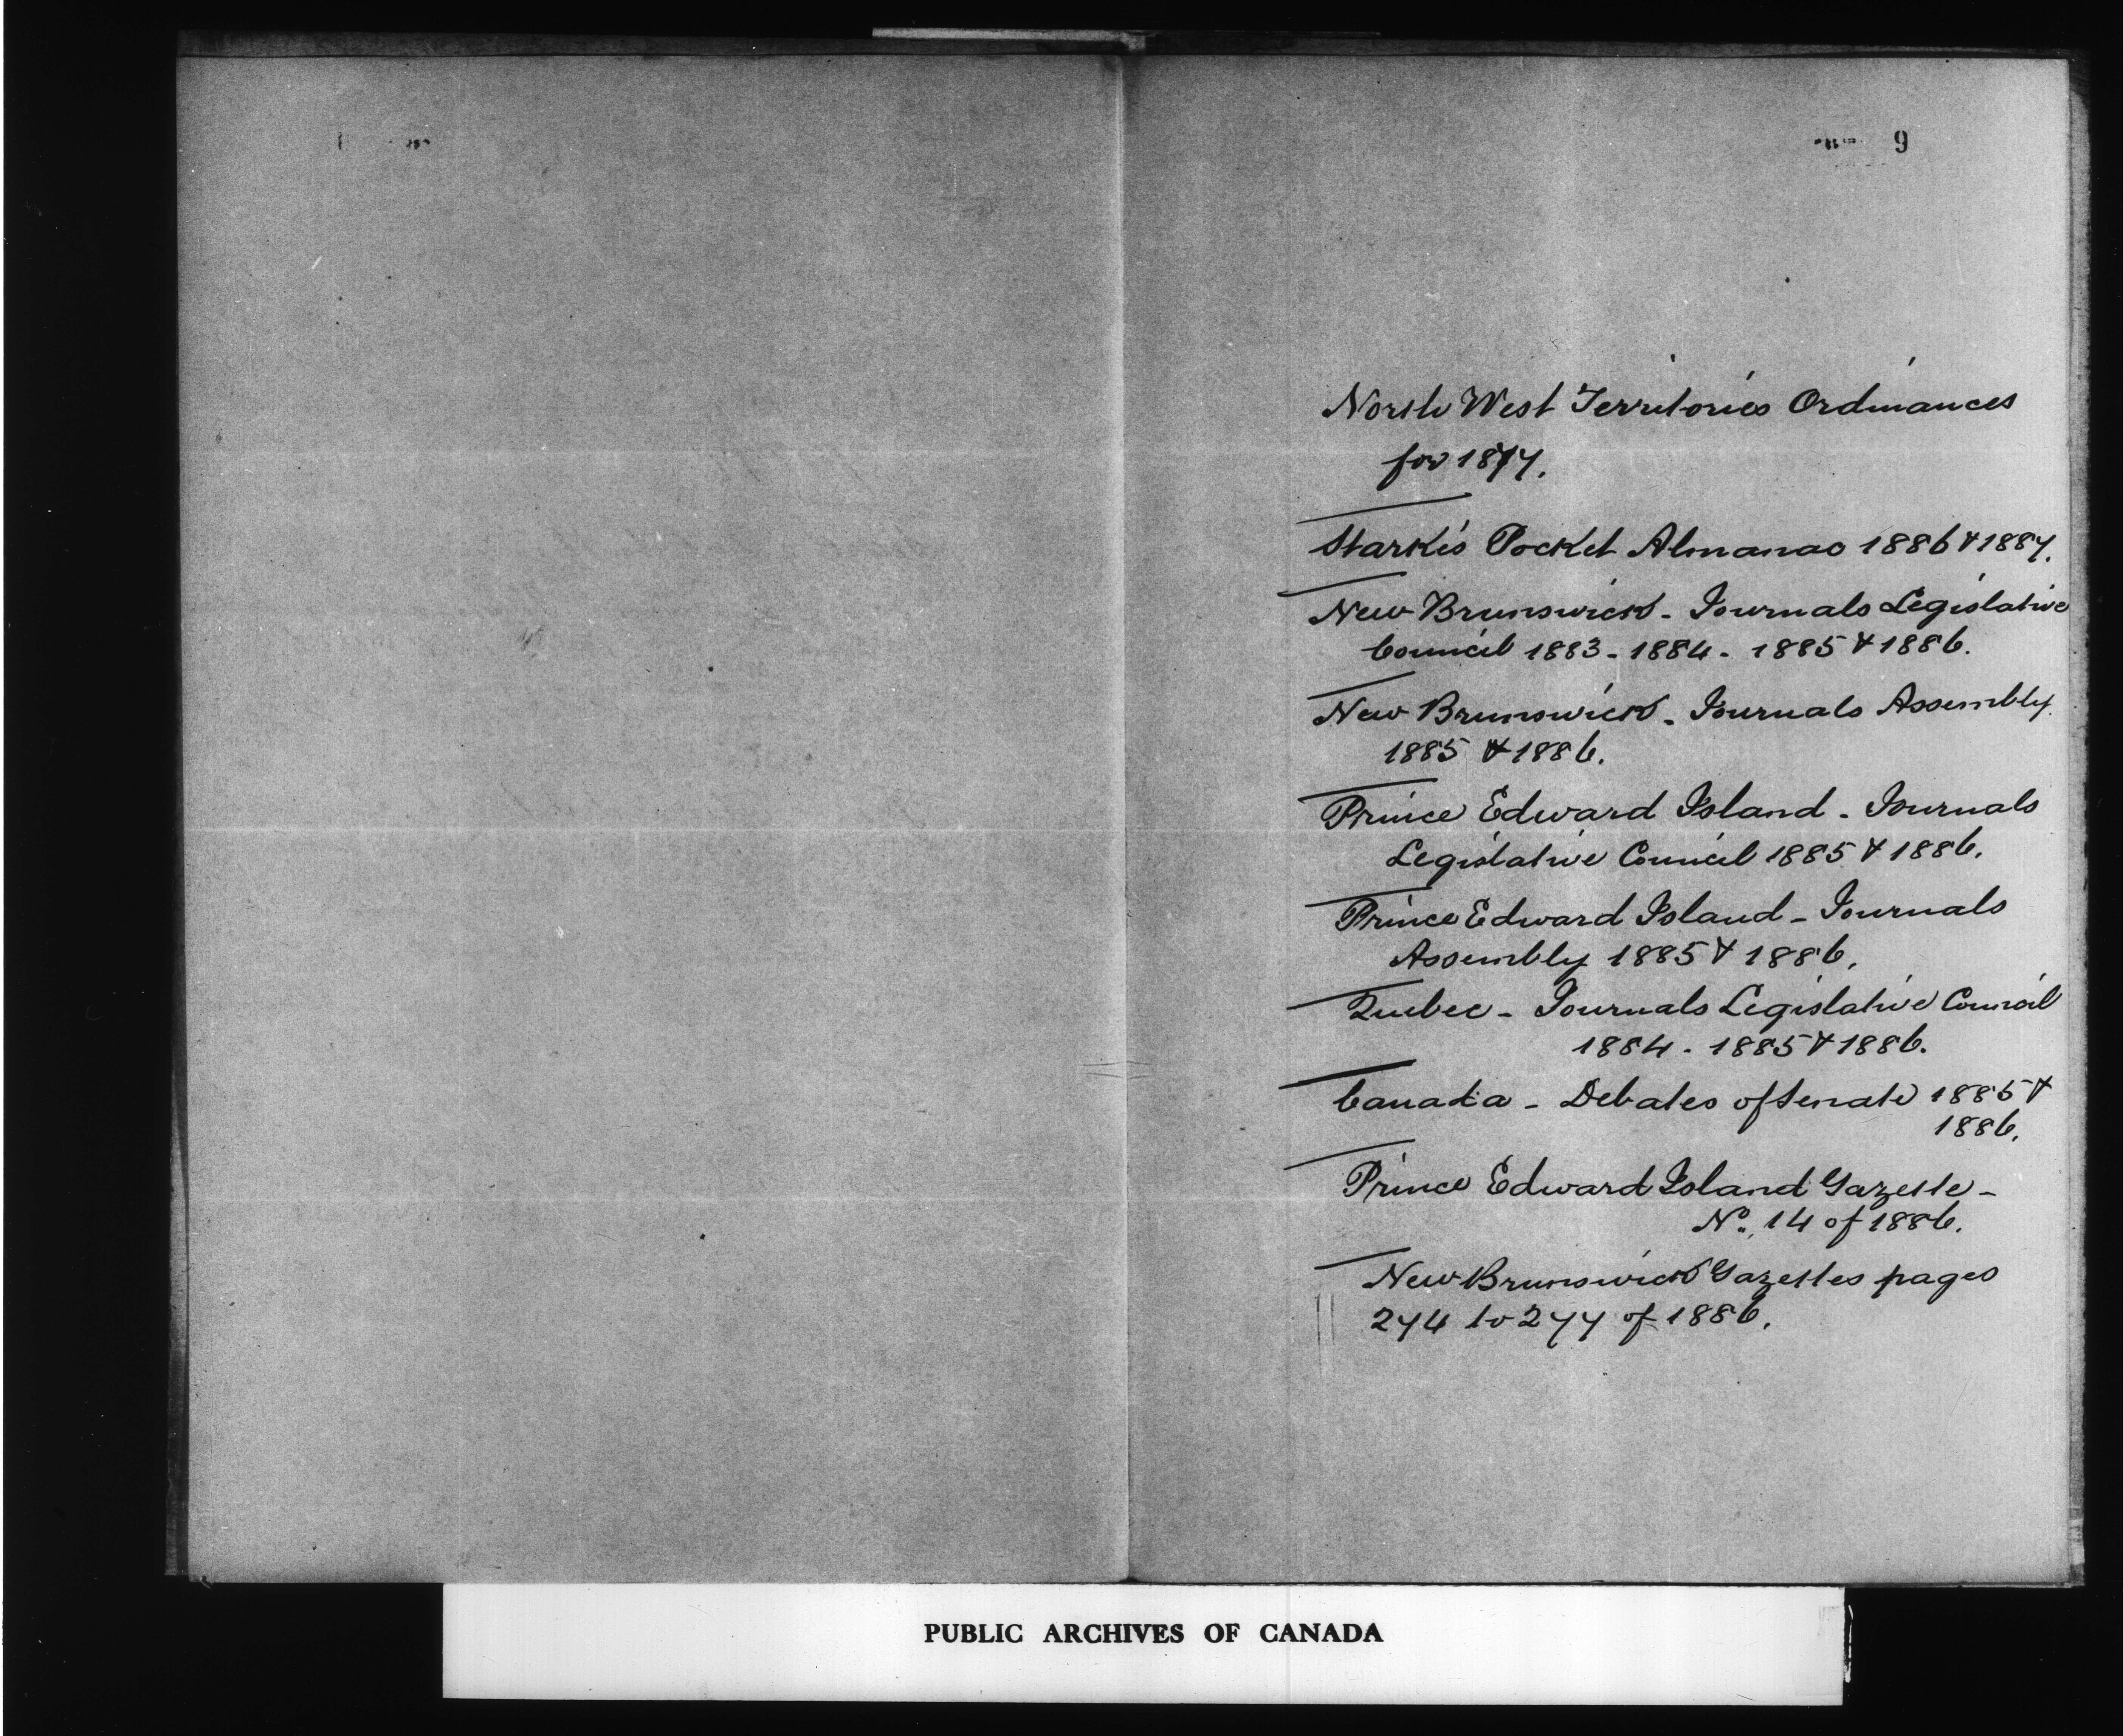 9
North West Territories Ordinances
for 1877.
Starke's Pocket Almanac 1886 & 1887.
New Brunswick - Journals Legislative
Council 1883 - 1884 - 1885 & 1886.
New Brunswick - Journals Assembly
1885 & 1886.
Prince Edward Island - Journals
Legislative Council 1885 & 1886.
Prince Edward Island - Journals
Assembly 1885 & 1886.
Quebec - Journals Legislative Council
1884 - 1885 & 1886.
Canada - Debates of Senate 1885 &
1886.
Prince Edward Island Gazette -
No. 14 of 1886.
New Brunswick Gazettes pages
274 to 277 of 1886.
PUBLIC ARCHIVES OF CANADA